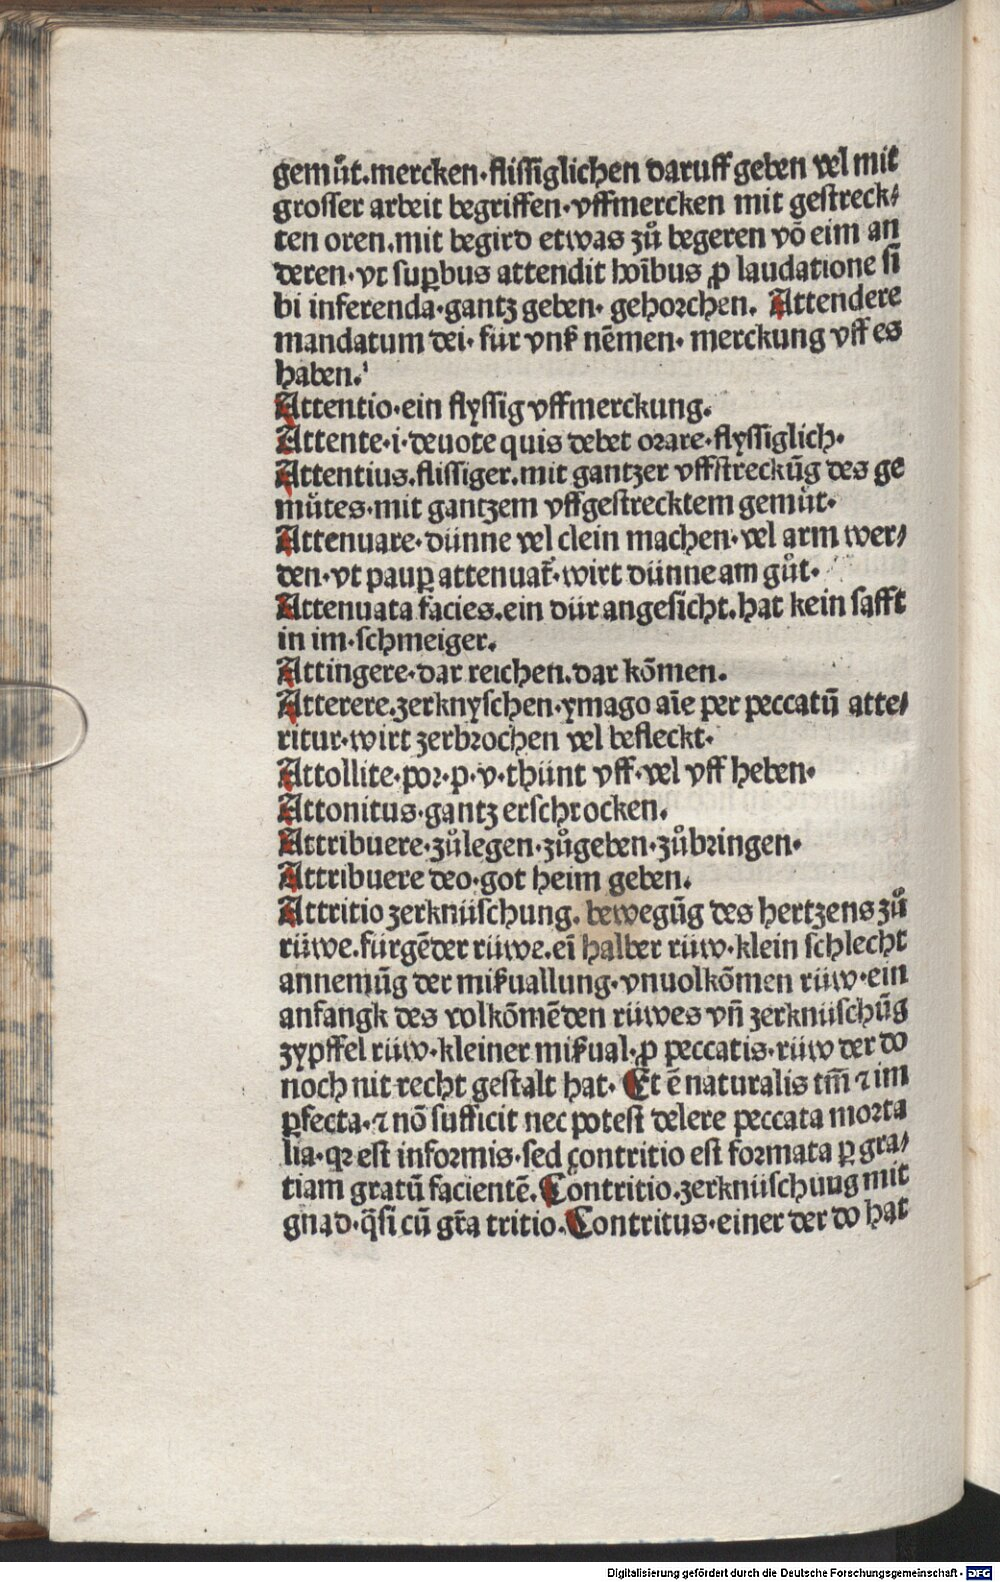 gemuͦt.mercken·flissiglichen daruff geben vel mit
grosser arbeit begriffen·vffmercken mit gestreck⸗
ten oren.mit begird etwas zuͦ begeren võ eim an
deren·vt suꝑbus attendit hoĩbus ꝓ laudatione si
bi inferenda·gantz geben·gehorchen. Attendere
mandatum dei·für vnß nẽmen·merckung vff es
haben.
Attentio·ein flyssig vffmerckung.
Attente·i·deuote quis debet orare·flyssiglich·
Attentius.flissiger.mit gantzer vffstreckũg des ge
muͦtes·mit gantzem vffgestrecktem gemuͦt·
Attenuare·dünne vel clein machen·vel arm wer⸗
den·vt pauꝑ attenuat̃·wirt dünne am guͦt·
Attenuata facies.ein dür angesicht.hat kein safft
in im·schmeiger.
Attingere·dar reichen.dar kõmen.
Atterere.zerknyschen·ymago aĩe per peccatũ atte⸗
ritur·wirt zerbrochen vel befleckt·
Attollite·por·p·v·thünt vff·vel vff heben·
Attonitus·gantz erschrocken.
Attribuere·zuͦlegen·zuͦgeben·zuͦbringen·
Attribuere deo·got heim geben.
Attritio zerknüschung.bewegũg des hertzens zuͦ
rüwe.fürgẽder rüwe.eĩ halber rüw·klein schlecht
annemũg der mißuallung·vnuolkõmen rüw·ein
anfangk des volkõmẽden rüwes vñ zerknüschũg
zypffel rüw·kleiner mißual·ꝓ peccatis·rüw der do
noch nit recht gestalt hat· Et ẽ naturalis tm̃ ⁊ im
ꝑfecta·⁊ nõ sufficit nec potest delere peccata morta
lia·qꝛ est informis·sed contritio est formata ꝑ gra⸗
tiam gratũ facientẽ.Contritio.zerknüschung mit
gnad·q̃si cũ gr̃a tritio.Contritus·einer der do hat
Digitalisierung gefördert durch die Deutsche Forschungsgemeinschaft - DFG